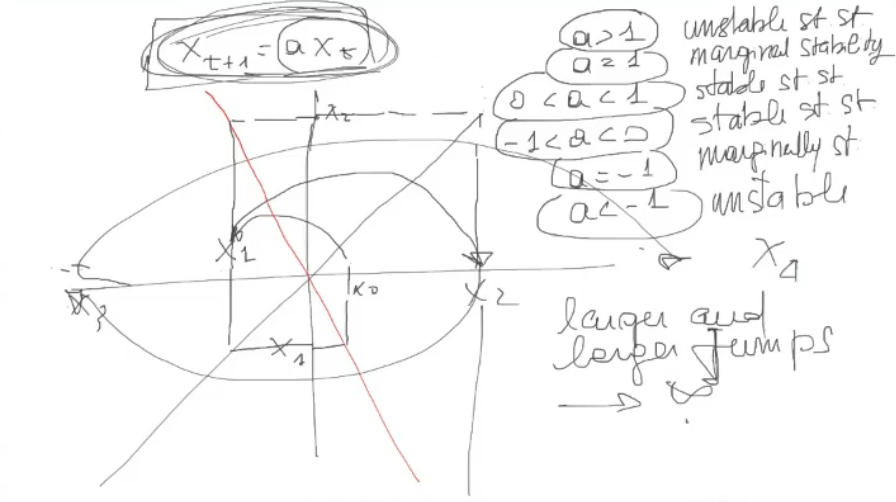 X_{t+1} = a X_t
a > 1 unstable st st
a = 1 marginal stability
0 < a < 1 stable st st
-1 < a < 0 stable st st
a = -1 marginally st
a < -1 unstable
X_2
X_1
X_0
X_2
X_3
X_1
X_4
larger and
larger jumps
→ ∞